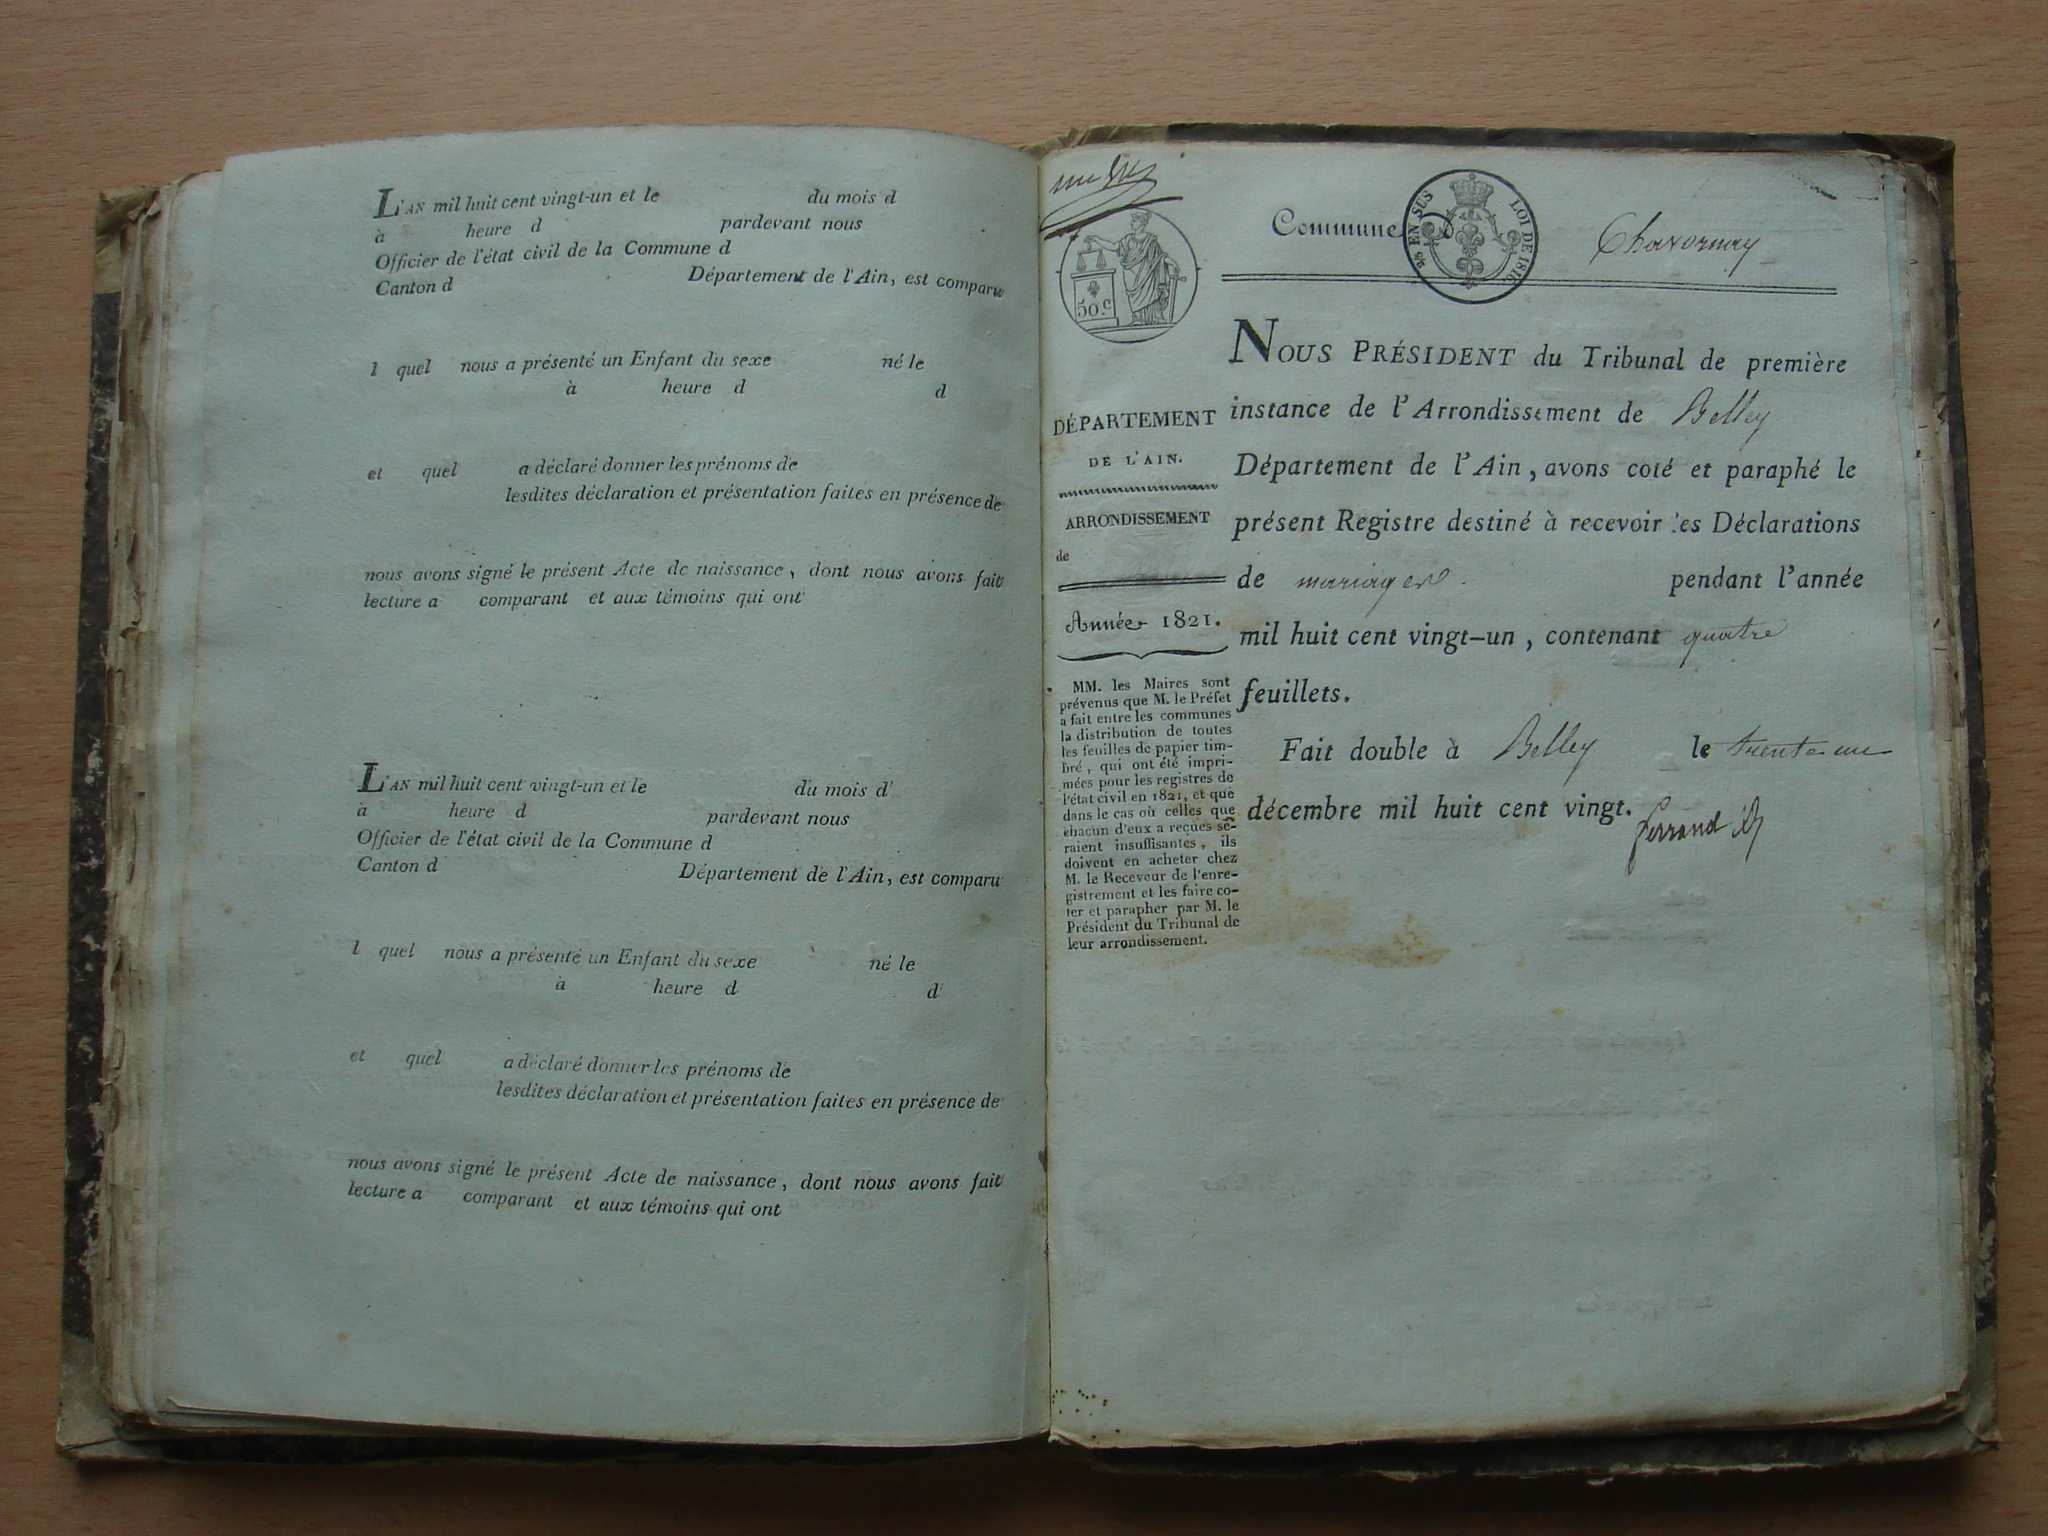 L'AN mil huit cent vingt-un et le du mois d
à heure d pardevant nous
Officier de l'état civil de la Commune d
Canton d Département de l'Ain, est comparu
l quel nous a présenté un Enfant du sexe né le
à heure d d
et quel a déclaré donner les prénoms de
lesdites déclaration et présentation faites en présence de
nous avons signé le présent Acte de naissance, dont nous avons fait
lecture a comparant et aux témoins qui ont
L'AN mil huit cent vingt-un et le du mois d
à heure d pardevant nous
Officier de l'état civil de la Commune d
Canton d Département de l'Ain, est comparu
l quel nous a présenté un Enfant du sexe né le
à heure d d
et quel a déclaré donner les prénoms de
lesdites déclaration et présentation faites en présence de
nous avons signé le présent Acte de naissance, dont nous avons fait
lecture a comparant et aux témoins qui ont
50.c
EN SUS LOI DE 1816
Commune Chavornay
DÉPARTEMENT
DE L'AIN.
ARRONDISSEMENT
de
Année 1821.
MM. les Maires sont
prévenus que M. le Préfet
a fait entre les communes
la distribution de toutes
les feuilles de papier tim-
bré, qui ont été impri-
mées pour les registres de
l'état civil en 1821, et que
dans le cas où celles que
chacun d'eux a reçues se-
raient insuffisantes, ils
doivent en acheter chez
M. le Receveur de l'enre-
gistrement et les faire co-
ter et parapher par M. le
Président du Tribunal de
leur arrondissement.
NOUS PRÉSIDENT du Tribunal de première
instance de l'Arrondissement de Belley
Département de l'Ain, avons coté et paraphé le
présent Registre destiné à recevoir les Déclarations
de mariages pendant l'année
mil huit cent vingt-un, contenant quatre
feuillets.
Fait double à Belley le trente un
décembre mil huit cent vingt.
ferrand